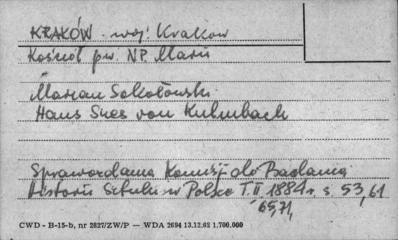 KRAKÓW - woj. Kraków
Kościół pw. NP. Marii
Marian Sokołowski
Hans Sues von Kulmbach
Sprawozdania Komisji do Badania
Historii Sztuki w Polsce T. II 1884 r. s. 53, 61
65, 71,
CWD - B-15-b, nr 2827/ZW/P — WDA 2694 13.12.62 1.700.000